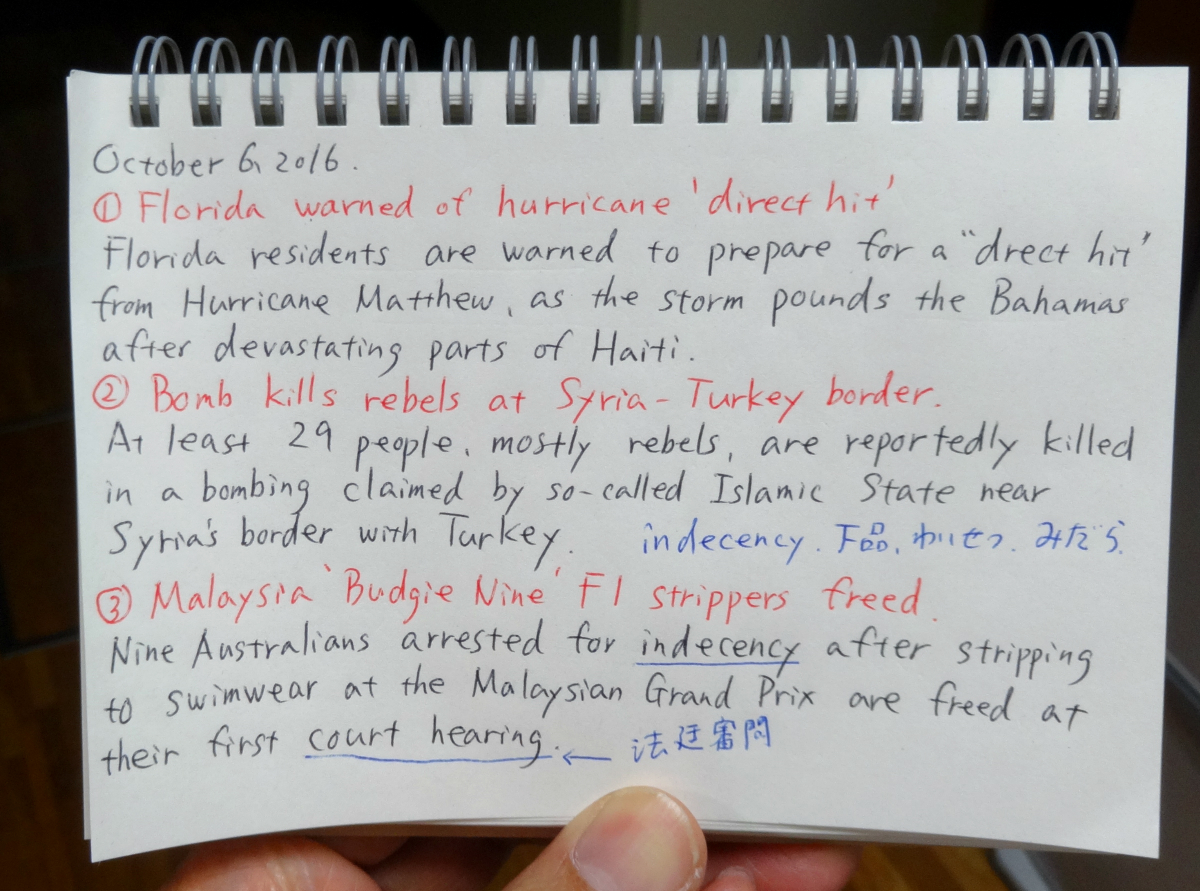 October 6, 2016.
① Florida warned of hurricane 'direct hit'
Florida residents are warned to prepare for a "drect hit'
from Hurricane Matthew, as the storm pounds the Bahamas
after devastating parts of Haiti.
② Bomb kills rebels at Syria-Turkey border.
At least 29 people, mostly rebels, are reportedly killed
in a bombing claimed by so-called Islamic State near
Syria's border with Turkey. indecency. 下品, わいせつ. みだら.
③ Malaysia 'Budgie Nine' F1 strippers freed.
Nine Australians arrested for indecency after stripping
to swimwear at the Malaysian Grand Prix are freed at
their first court hearing. ← 法廷審問